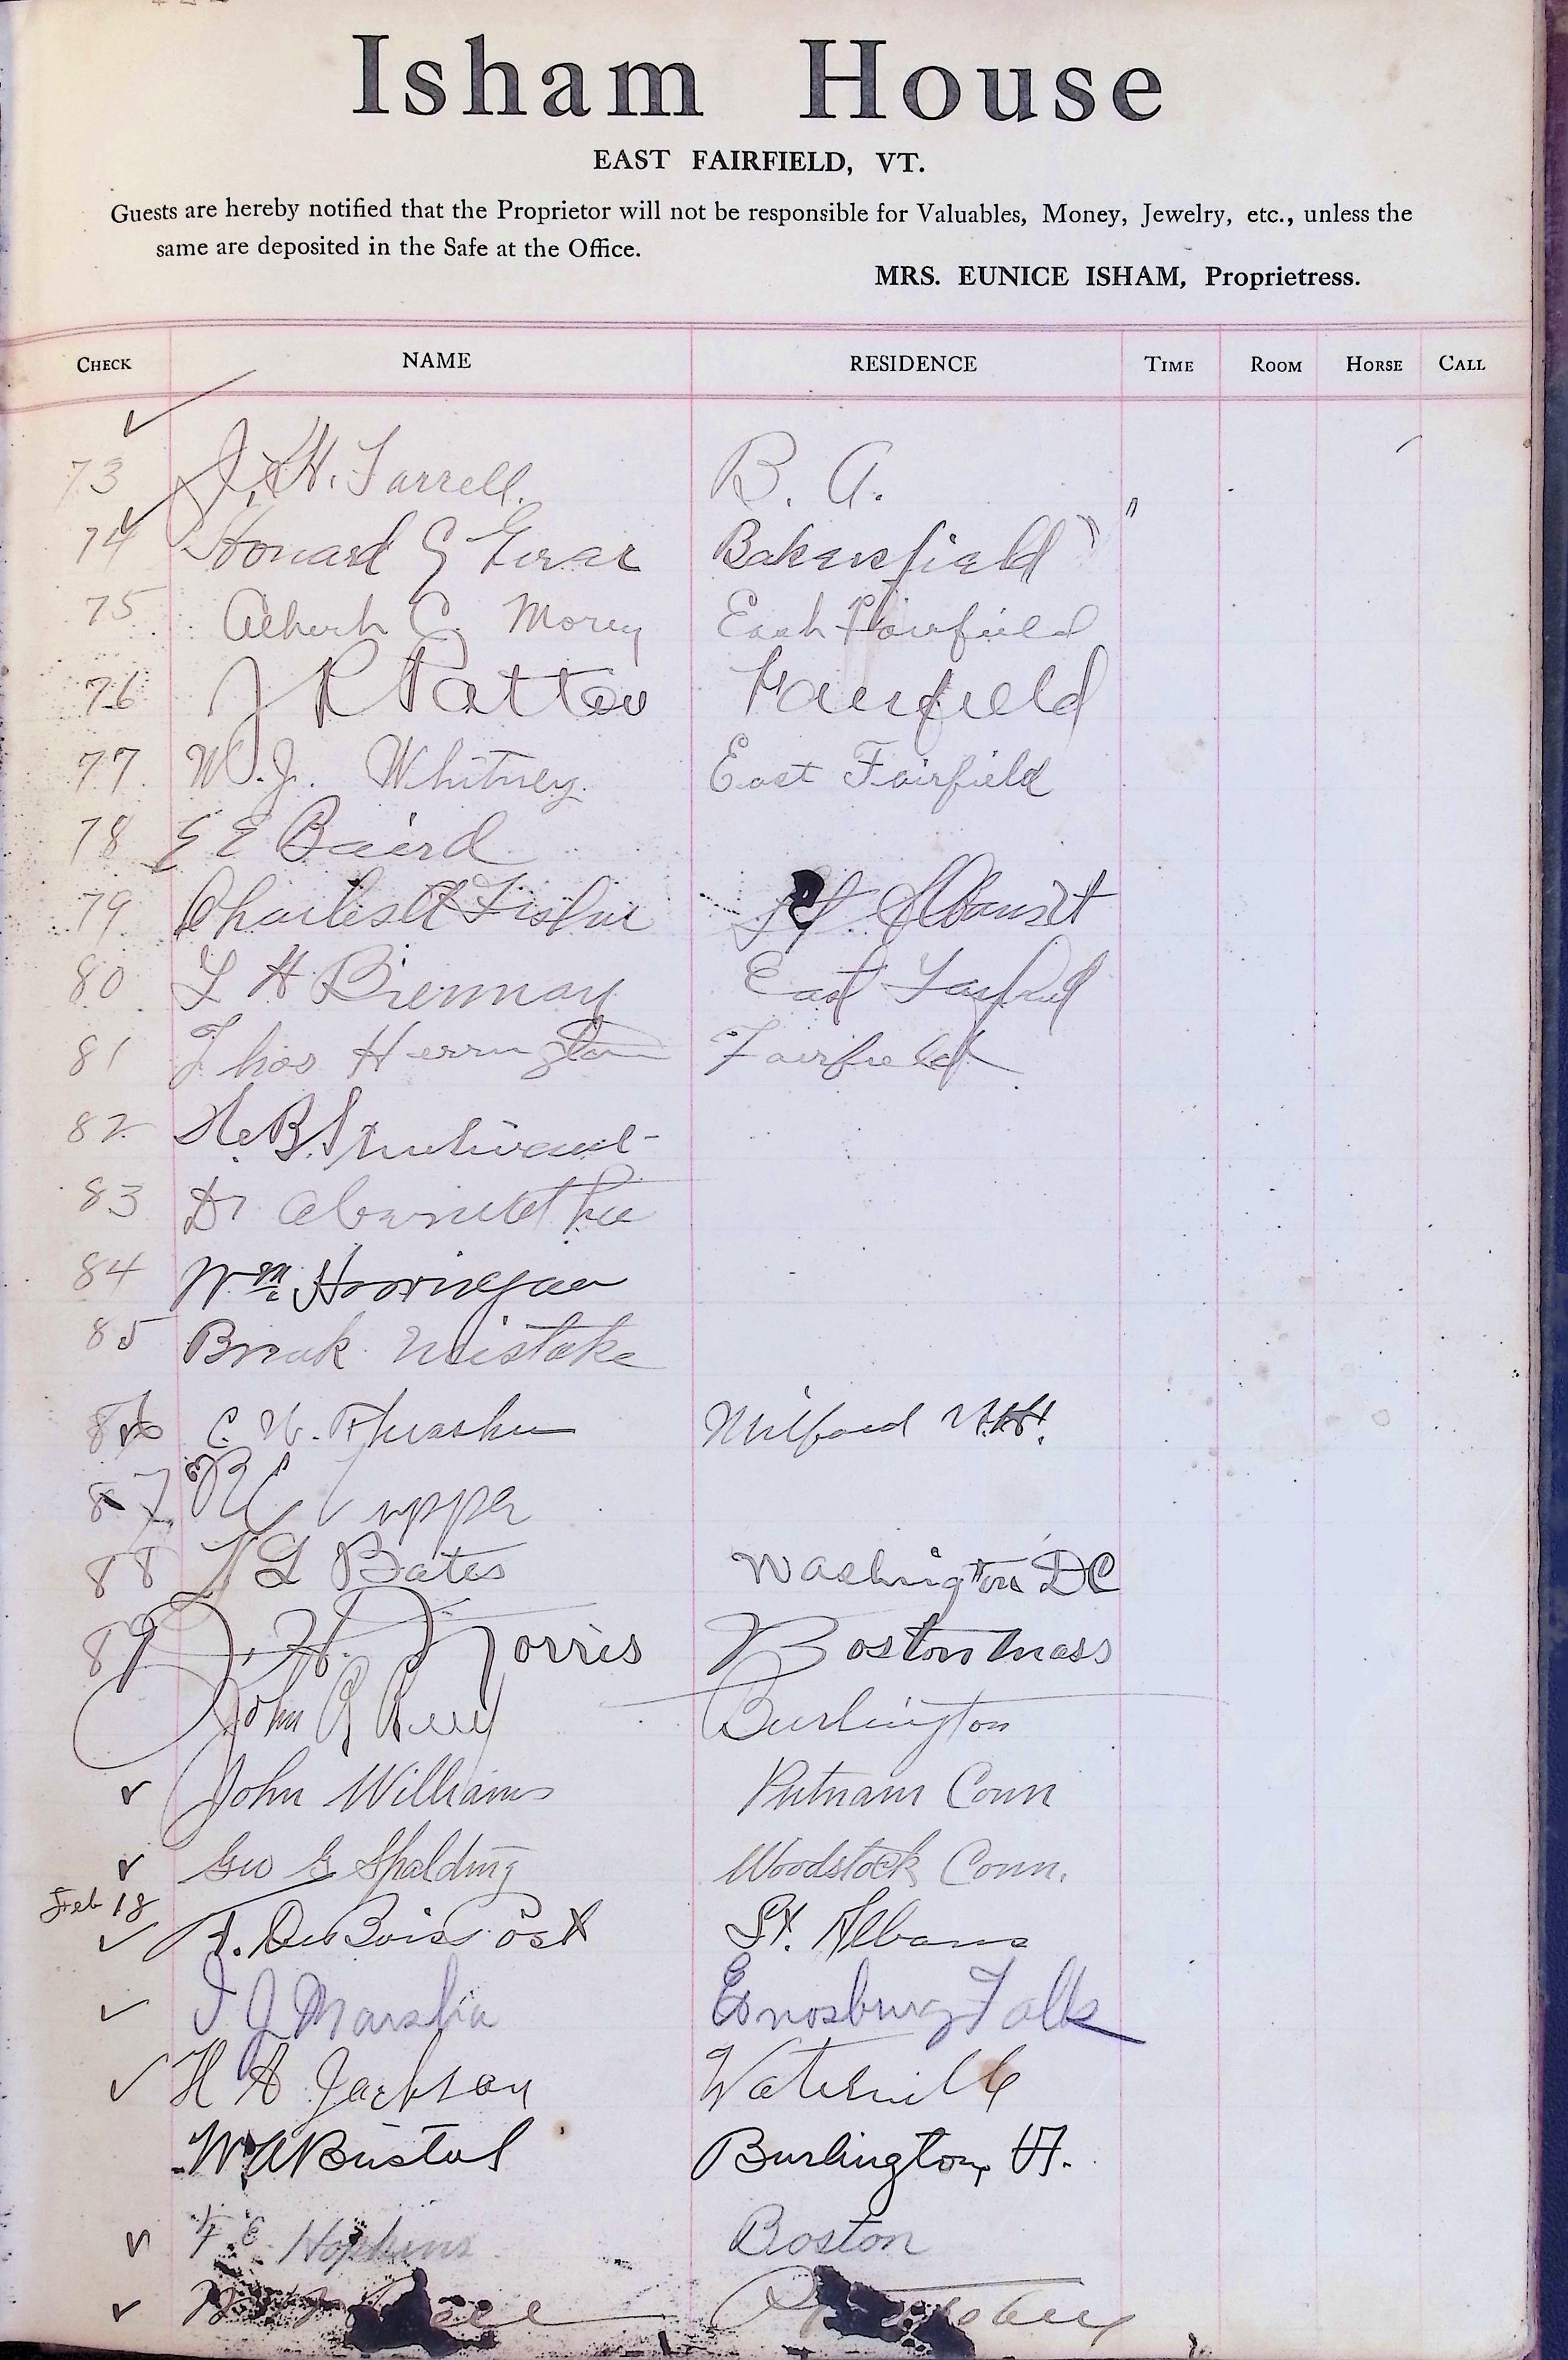 Isham House
EAST FAIRFIELD, VT.
Guests are hereby notified that the Proprietor will not be responsible for Valuables, Money, Jewelry, etc., unless the
same are deposited in the Safe at the Office.
MRS. EUNICE ISHAM, Proprietress.
CHECK NAME RESIDENCE TIME ROOM HORSE CALL
73 J. H. Farrell. B. A.
74 Howard E Bakersfield "
75 Albert C. Morey East Fairfield
76 J R Patton Fairfield
77 W. J. Whitney. East Fairfield
78 E E Baird
79 Charles A Fisher St. Albans Vt
80 L H Brennan East Fairfield
81 Thos Herrington Fairfield
82 H. B. Sturtivant
83 Dr Abernethy
84 Wm.
85 Break Mistake
86 C. W. Thrasher Milford N.H.
87 Tupper
88 Bates Washington DC
89 J. H. Norris Boston Mass
John Burlington
✓ John Williams Putnam Conn
✓ Geo G Spalding Woodstock Conn.
Feb 18
✓ F. DuBois Post St. Albans
✓ I J Marshia Enosburg Falls
✓ H A Jackson Waterville
W A Bristol Burlington, Vt.
✓ F E Hopkins Boston
✓